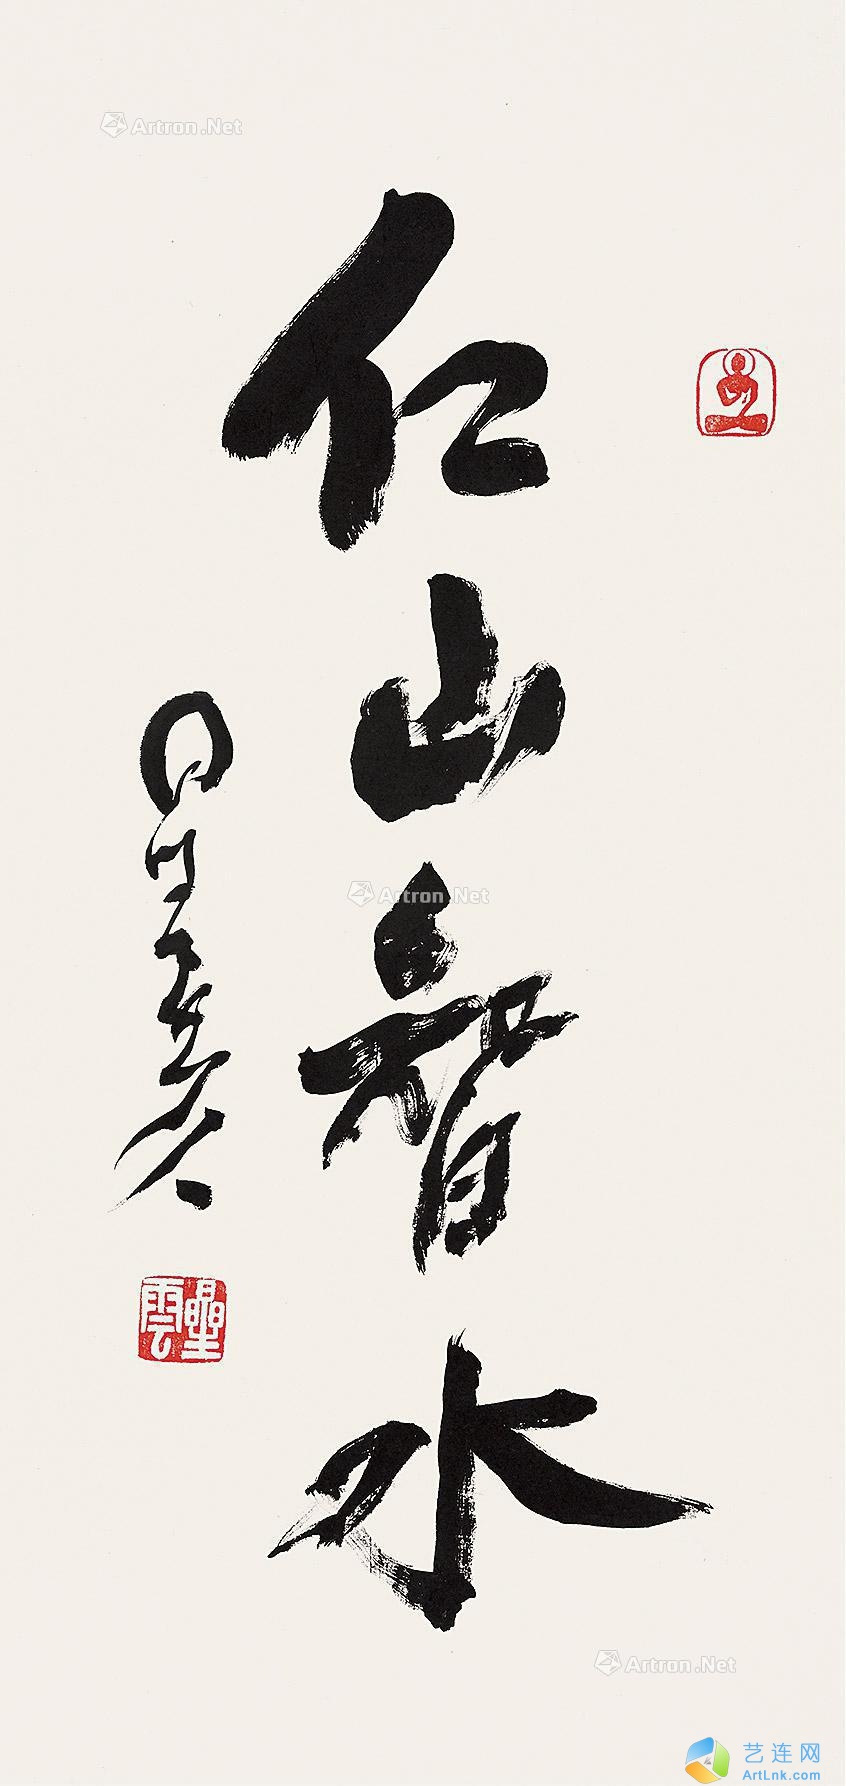 仁山智水
星雲
星雲
Artron.Net
Artron.Net
Artron.Net
艺连网
ArtLnk.com